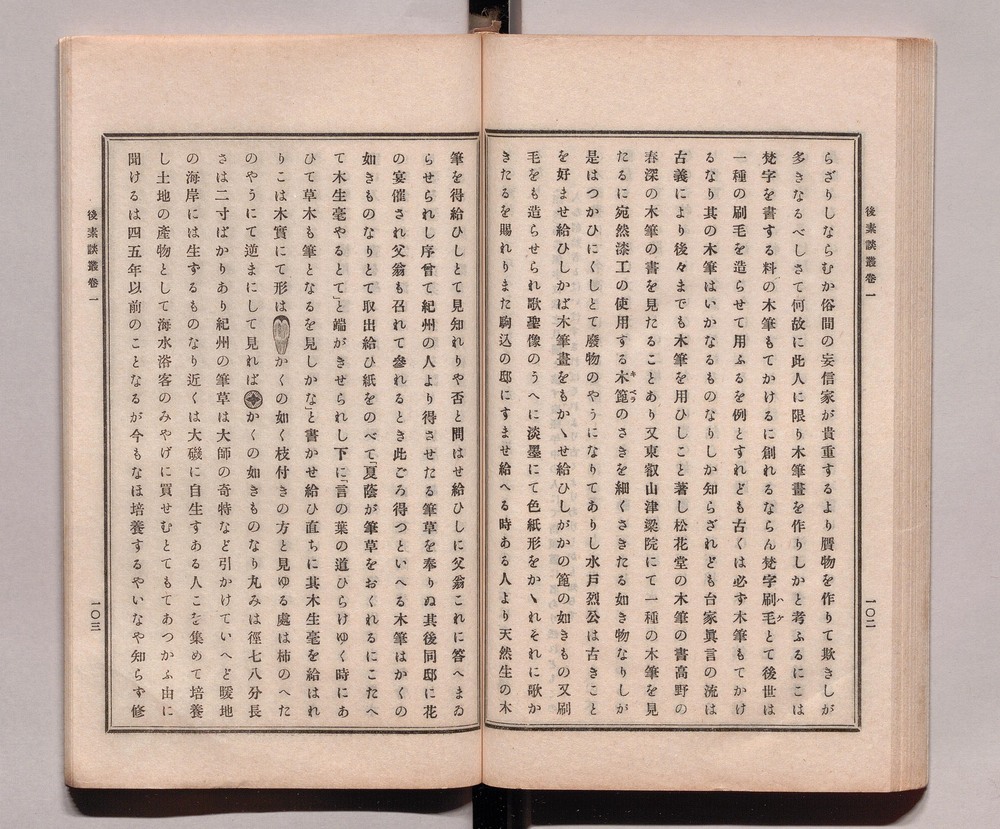 後素談叢卷一
一〇二
らざりしならむか俗間の妄信家が貴重するより贋物を作りて欺きしが
多きなるべしさて何故に此人に限り木筆畫を作りしかと考ふるにこは
梵字を書する料の木筆もてかけるに創れるならん梵字刷毛とて後世は
ハケ
一種の刷毛を造らせて用ふるを例とすれども古くは必ず木筆もてかけ
るなり其の木筆はいかなるものなりしか知らざれども台家眞言の流は
古義により後々までも木筆を用ひしこと著し松花堂の木筆の書高野の
春深の木筆の書を見たることあり又東叡山津梁院にて一種の木筆を見
たるに宛然漆工の使用する木篦のさきを細くさきたる如き物なりしが
キベラ
是はつかひにくしとて廢物のやうになりてありし水戸烈公は古きこと
を好ませ給ひしかば木筆畫をもかゝせ給ひしがかの篦の如きもの又刷
毛をも造らせられ歌聖像のうへに淡墨にて色紙形をかゝれそれに歌か
きたるを賜れりまた駒込の邸にすませ給へる時ある人より天然生の木
筆を得給ひしとて見知れりや否と問はせ給ひしに父翁これに答へまゐ
らせられし序曾て紀州の人より得させたる筆草を奉りぬ其後同邸に花
の宴催され父翁も召れて參れるとき此ごろ得つといへる木筆はかくの
如きものなりとて取出給ひ紙をのべて「夏蔭が筆草をおくれるにこたへ
て木生毫やるとて」と端がきせられし下に「言の葉の道ひらけゆく時にあ
ひて草木も筆となるを見しかな」と書かせ給ひ直ちに其木生毫を給はれ
りこは木實にて形はかくの如く枝付きの方と見ゆる處は柿のへた
のやうにて逆まにして見ればかくの如きものなり丸みは徑七八分長
さは二寸ばかりあり紀州の筆草は大師の奇特など引かけていへど暖地
の海岸には生ずるものなり近くは大磯に自生すある人こを集めて培養
し土地の產物として海水浴客のみやげに買せむとてもてあつかふ由に
聞けるは四五年以前のことなるが今もなほ培養するやいなや知らず修
後素談叢卷一
一〇三